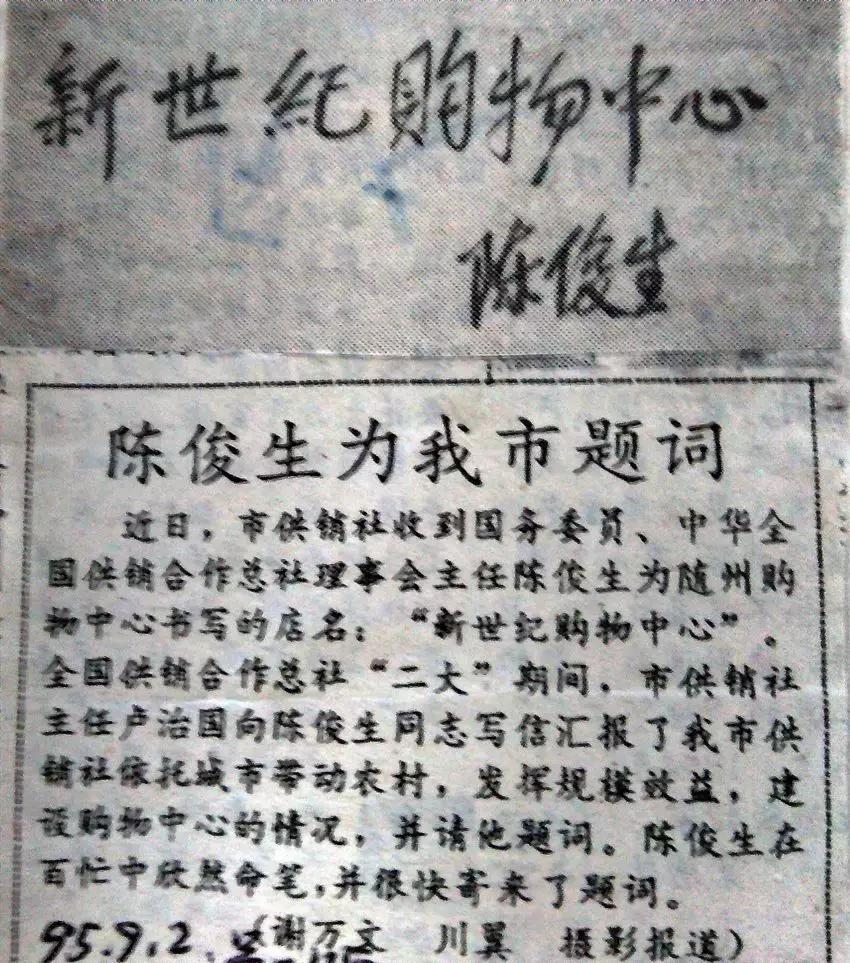 新世紀购物中心
陈俊生
陈俊生为我市题词
近日，市供销社收到国务委员、中华全
国供销合作总社理事会主任陈俊生为随州购
物中心书写的店名：“新世纪购物中心”。
全国供销合作总社“二大”期间，市供销社
主任卢治国向陈俊生同志写信汇报了我市供
销社依托城市带动农村，发挥规模效益，建
设购物中心的情况，并请他题词。陈俊生在
百忙中欣然命笔，并很快寄来了题词。
（谢万文 川翼 摄影报道）
95.9.2.